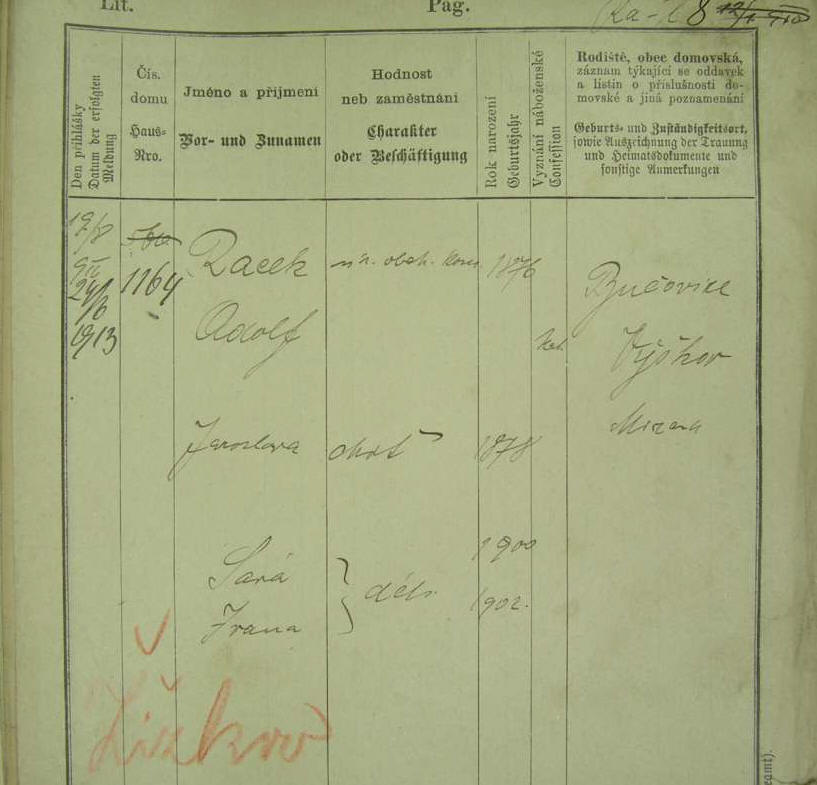 Lit. Pag. 8
Den přihlášky
Datum der erfolgten
Meldung
Čís.
domu
Haus-
Nro.
Jméno a příjmení
Vor- und Zunamen
Hodnost
neb zaměstnání
Charakter
oder Beschäftigung
Rok narození
Geburtsjahr
Vyznání náboženské
Confession
Rodiště, obec domovská,
záznam týkající se oddavek
a listin o příslušnosti do-
movské a jiná poznamenání
Geburts- und Zuständigkeitsort,
sowie Auszeichnung der Trauung
und Heimatsdokumente und
sonstige Anmerkungen
19/8
1164 Racek 1876 Bučovice
24/6
1913 Adolf kat. Vyškov
Morava
Jaroslava choť 1878
Sává 1900
děti 1902.
Ivana
V
Žižkov